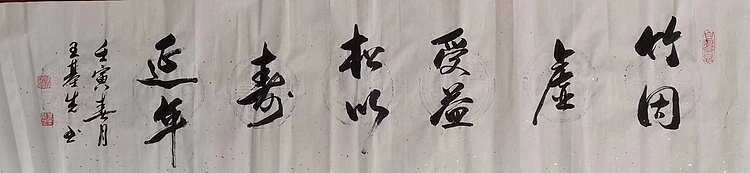 竹因
虚
受益
松以
寿
延年
壬寅春月
王基先书